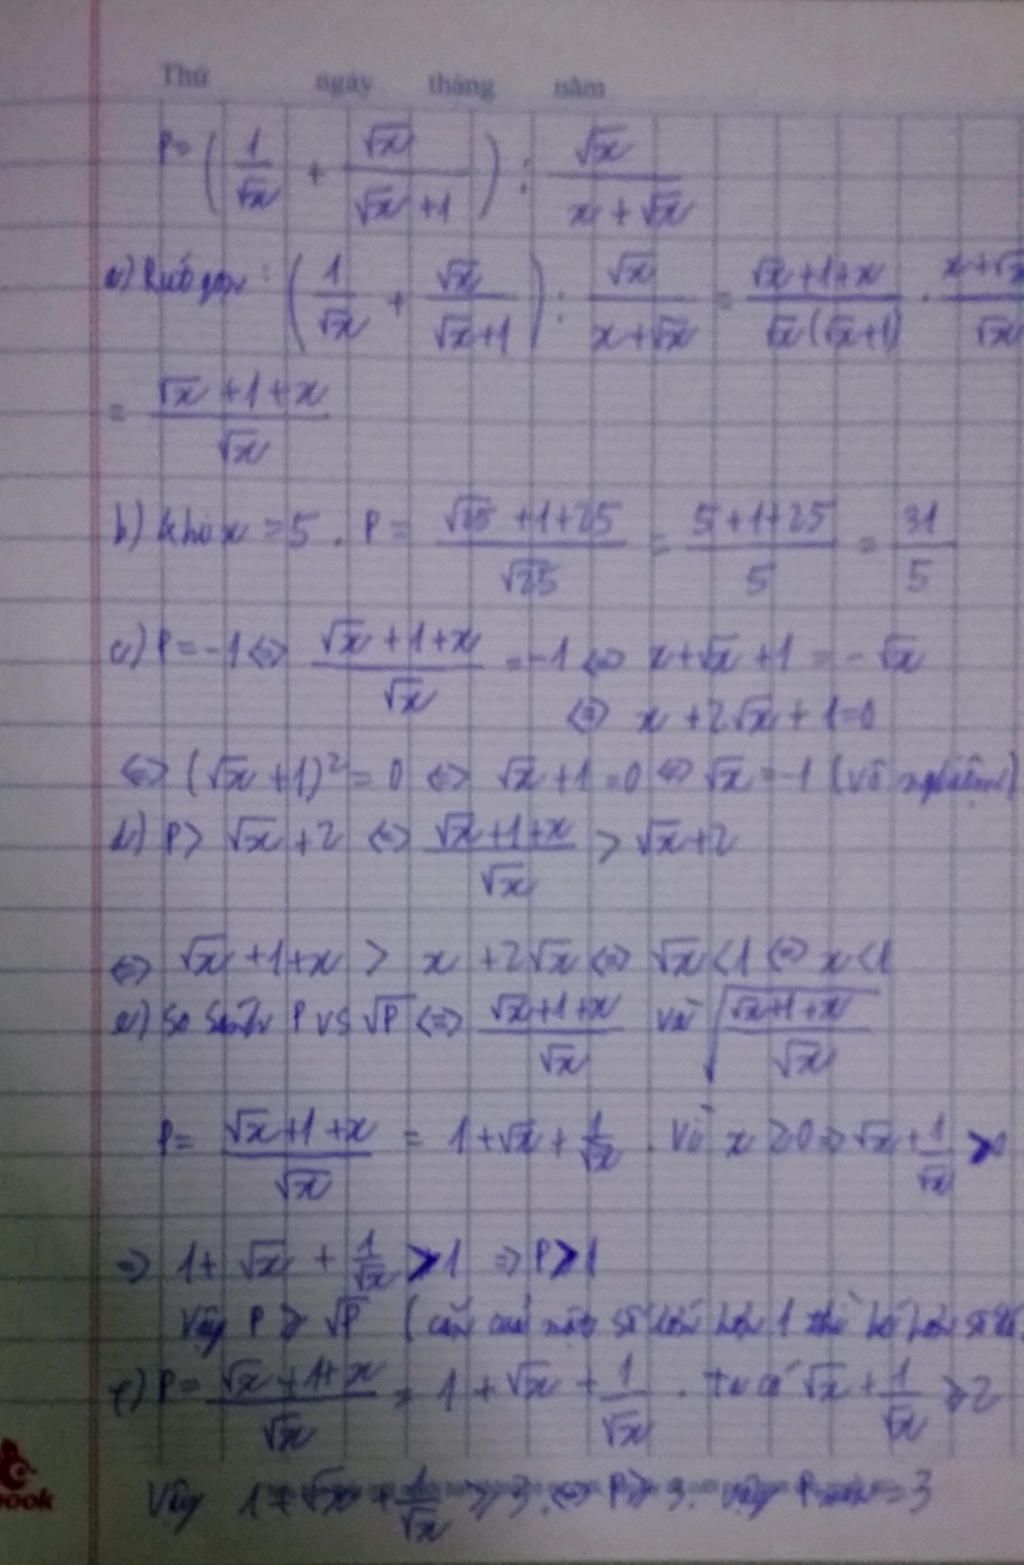 Thứ ngày tháng năm
P = (1/√x + √x/(√x + 1)) : √x/(x + √x)
a) Rút gọn : (1/√x + √x/(√x+1)) : √x/(x+√x) = (√x+1+x)/(√x(√x+1)) . (x+√x)/√x
= (√x + 1 + x)/√x
b) khi x = 5 . P = (√25 + 1 + 25)/√25 = (5 + 1 + 25)/5 = 31/5
c) P = -1 ⇔ (√x + 1 + x)/√x = -1 ⇔ x + √x + 1 = -√x
⇔ x + 2√x + 1 = 0
⇔ (√x + 1)² = 0 ⇔ √x + 1 = 0 ⇔ √x = -1 (vô nghiệm)
d) P > √x + 2 ⇔ (√x + 1 + x)/√x > √x + 2
⇔ √x + 1 + x > x + 2√x ⇔ √x < 1 ⇔ x < 1
e) So sánh P vs √P ⇔ (√x+1+x)/√x và √((√x+1+x)/√x)
P = (√x+1+x)/√x = 1 + √x + 1/√x . Vì x ≥ 0 ⇒ √x + 1/√x > 0
⇒ 1 + √x + 1/√x > 1 ⇒ P > 1
Vậy P > √P (căn của một số lớn hơn 1 thì bé hơn số
f) P = (√x + 1 + x)/√x = 1 + √x + 1/√x . Ta có √x + 1/√x ≥ 2
Vậy 1 + √x + 1/√x ≥ 3 . ⇔ P ≥ 3 . Vậy Pmin = 3
ook